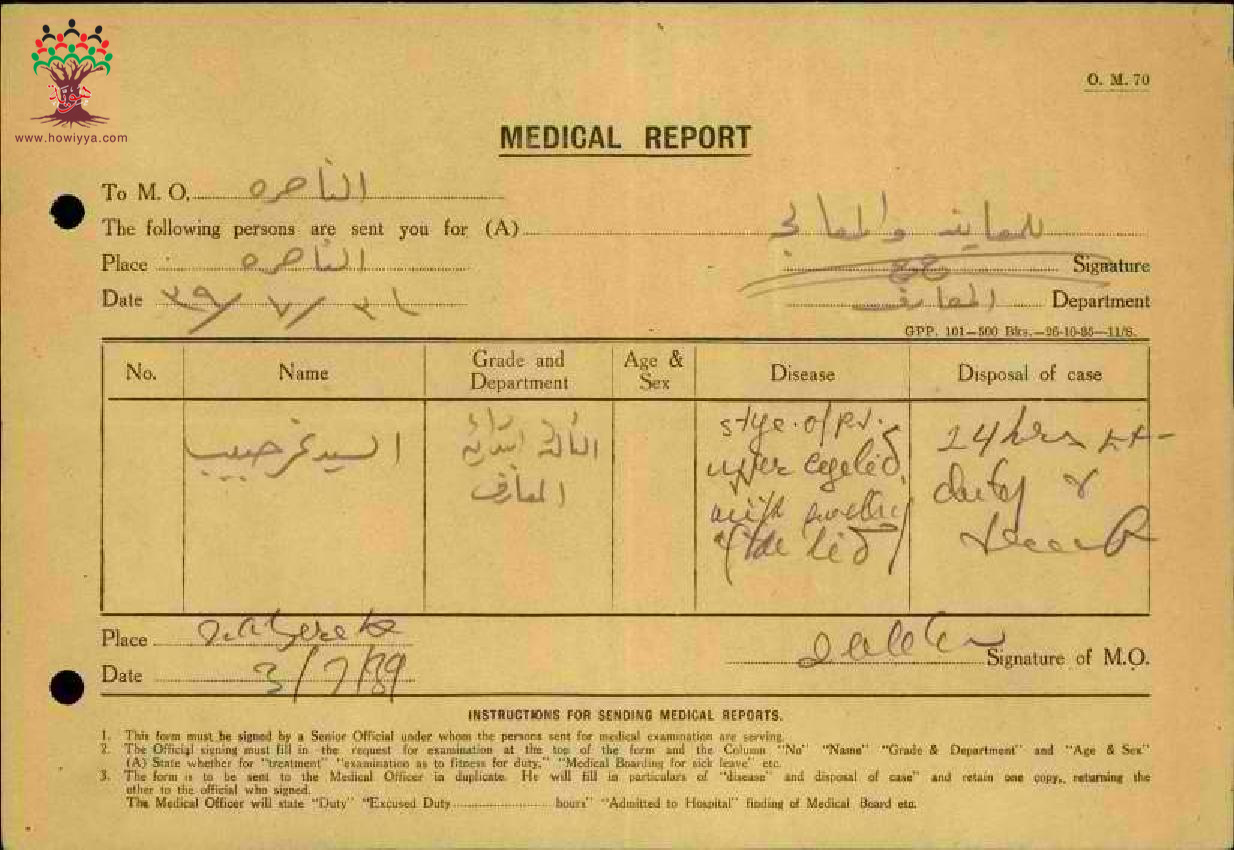 www.howiyya.com
O. M. 70
MEDICAL REPORT
To M. O, الناصره
The following persons are sent you for (A) للمعاينه والمعالج
Place الناصره
Signature
Date ٣٩/٧/
المعارف Department
GPP. 101—500 Bks.—26-10-35—11/S.
No. Name Grade and Department Age & Sex Disease Disposal of case
السيد نمر حبيب
المعارف
stye of Rt.
upper eyelid
with swelling
of the lid
24 hrs Ex-
duty &
Place Nazareth
Date 3/7/39
Signature of M.O.
INSTRUCTIONS FOR SENDING MEDICAL REPORTS.
1. This form must be signed by a Senior Official under whom the persons sent for medical examination are serving.
2. The Official signing must fill in the request for examination at the top of the form and the Column "No" "Name" "Grade & Department" and "Age & Sex"
(A) State whether for "treatment" "examination as to fitness for duty," "Medical Boarding for sick leave" etc.
3. The form is to be sent to the Medical Officer in duplicate. He will fill in particulars of "disease" and disposal of case" and retain one copy, returning the
other to the official who signed.
The Medical Officer will state "Duty" "Excused Duty.......................... hours" "Admitted to Hospital" finding of Medical Board etc.